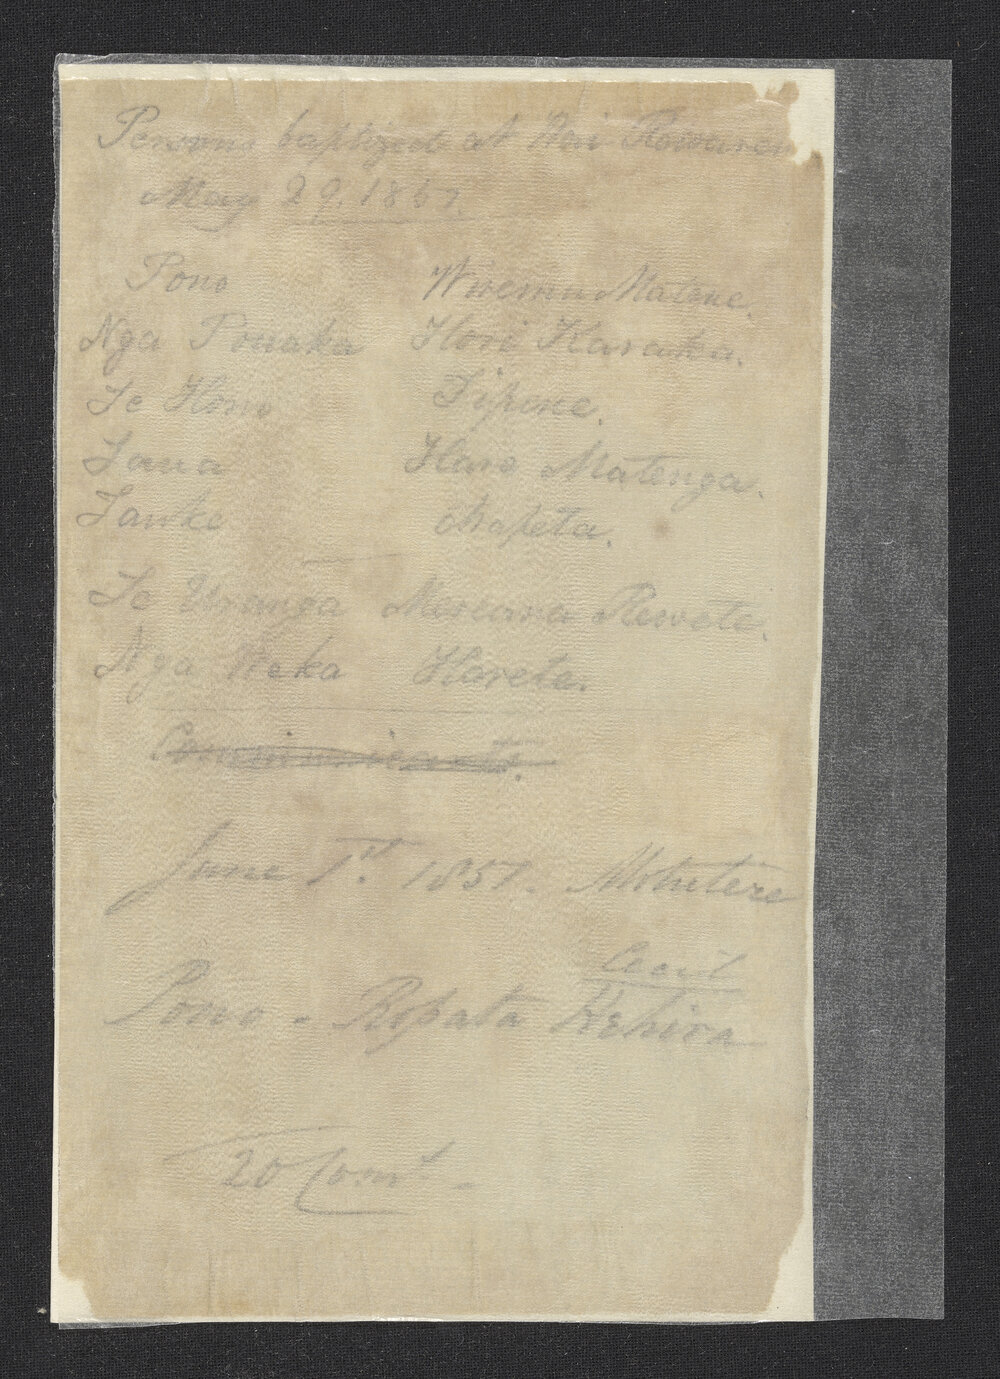 Persons baptized at
May 29. 1857.
Pono Wiremu Matene.
Nga Pouaka Hori Karaka.
Te Hono Tipene.
Taua Hare Matenga.
Tauke Arapeta.
Te Uranga Mereana Rewete.
Nga Weka Harete.
Communicants.
June 1st. 1857. Motutere
Cecil
Pono - Ropata Kehira
20 Comt.